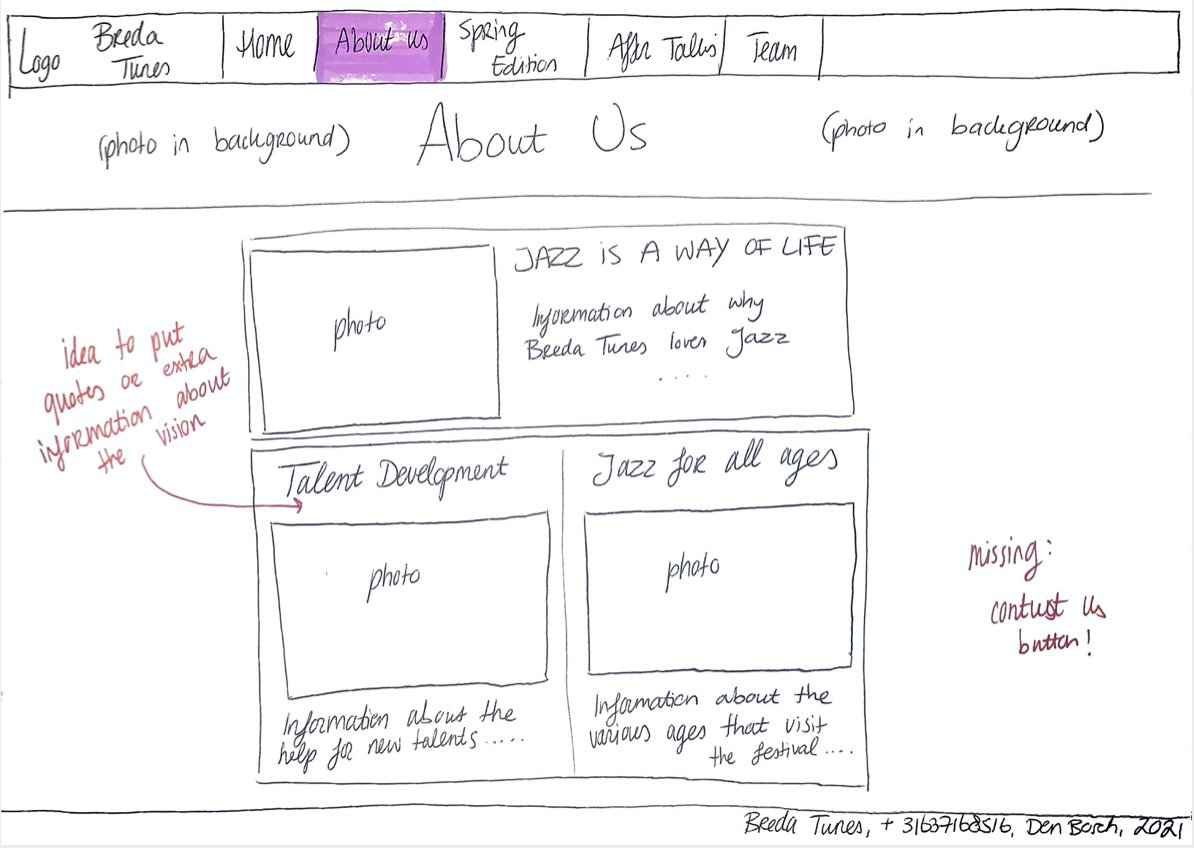 Logo
Breda
Tunes
Home
About us
Spring
Edition
After Talks
Team
(photo in background)
About Us
(photo in background)
photo
JAZZ IS A WAY OF LIFE
Information about why
Breda Tunes loves Jazz
....
idea to put
quotes or extra
information about
the vision
Talent Development
photo
Information about the
help for new talents.....
Jazz for all ages
photo
Information about the
various ages that visit
the festival....
missing:
contust us
button!
Breda Tunes, + 31637168516, Den Bosch, 2021